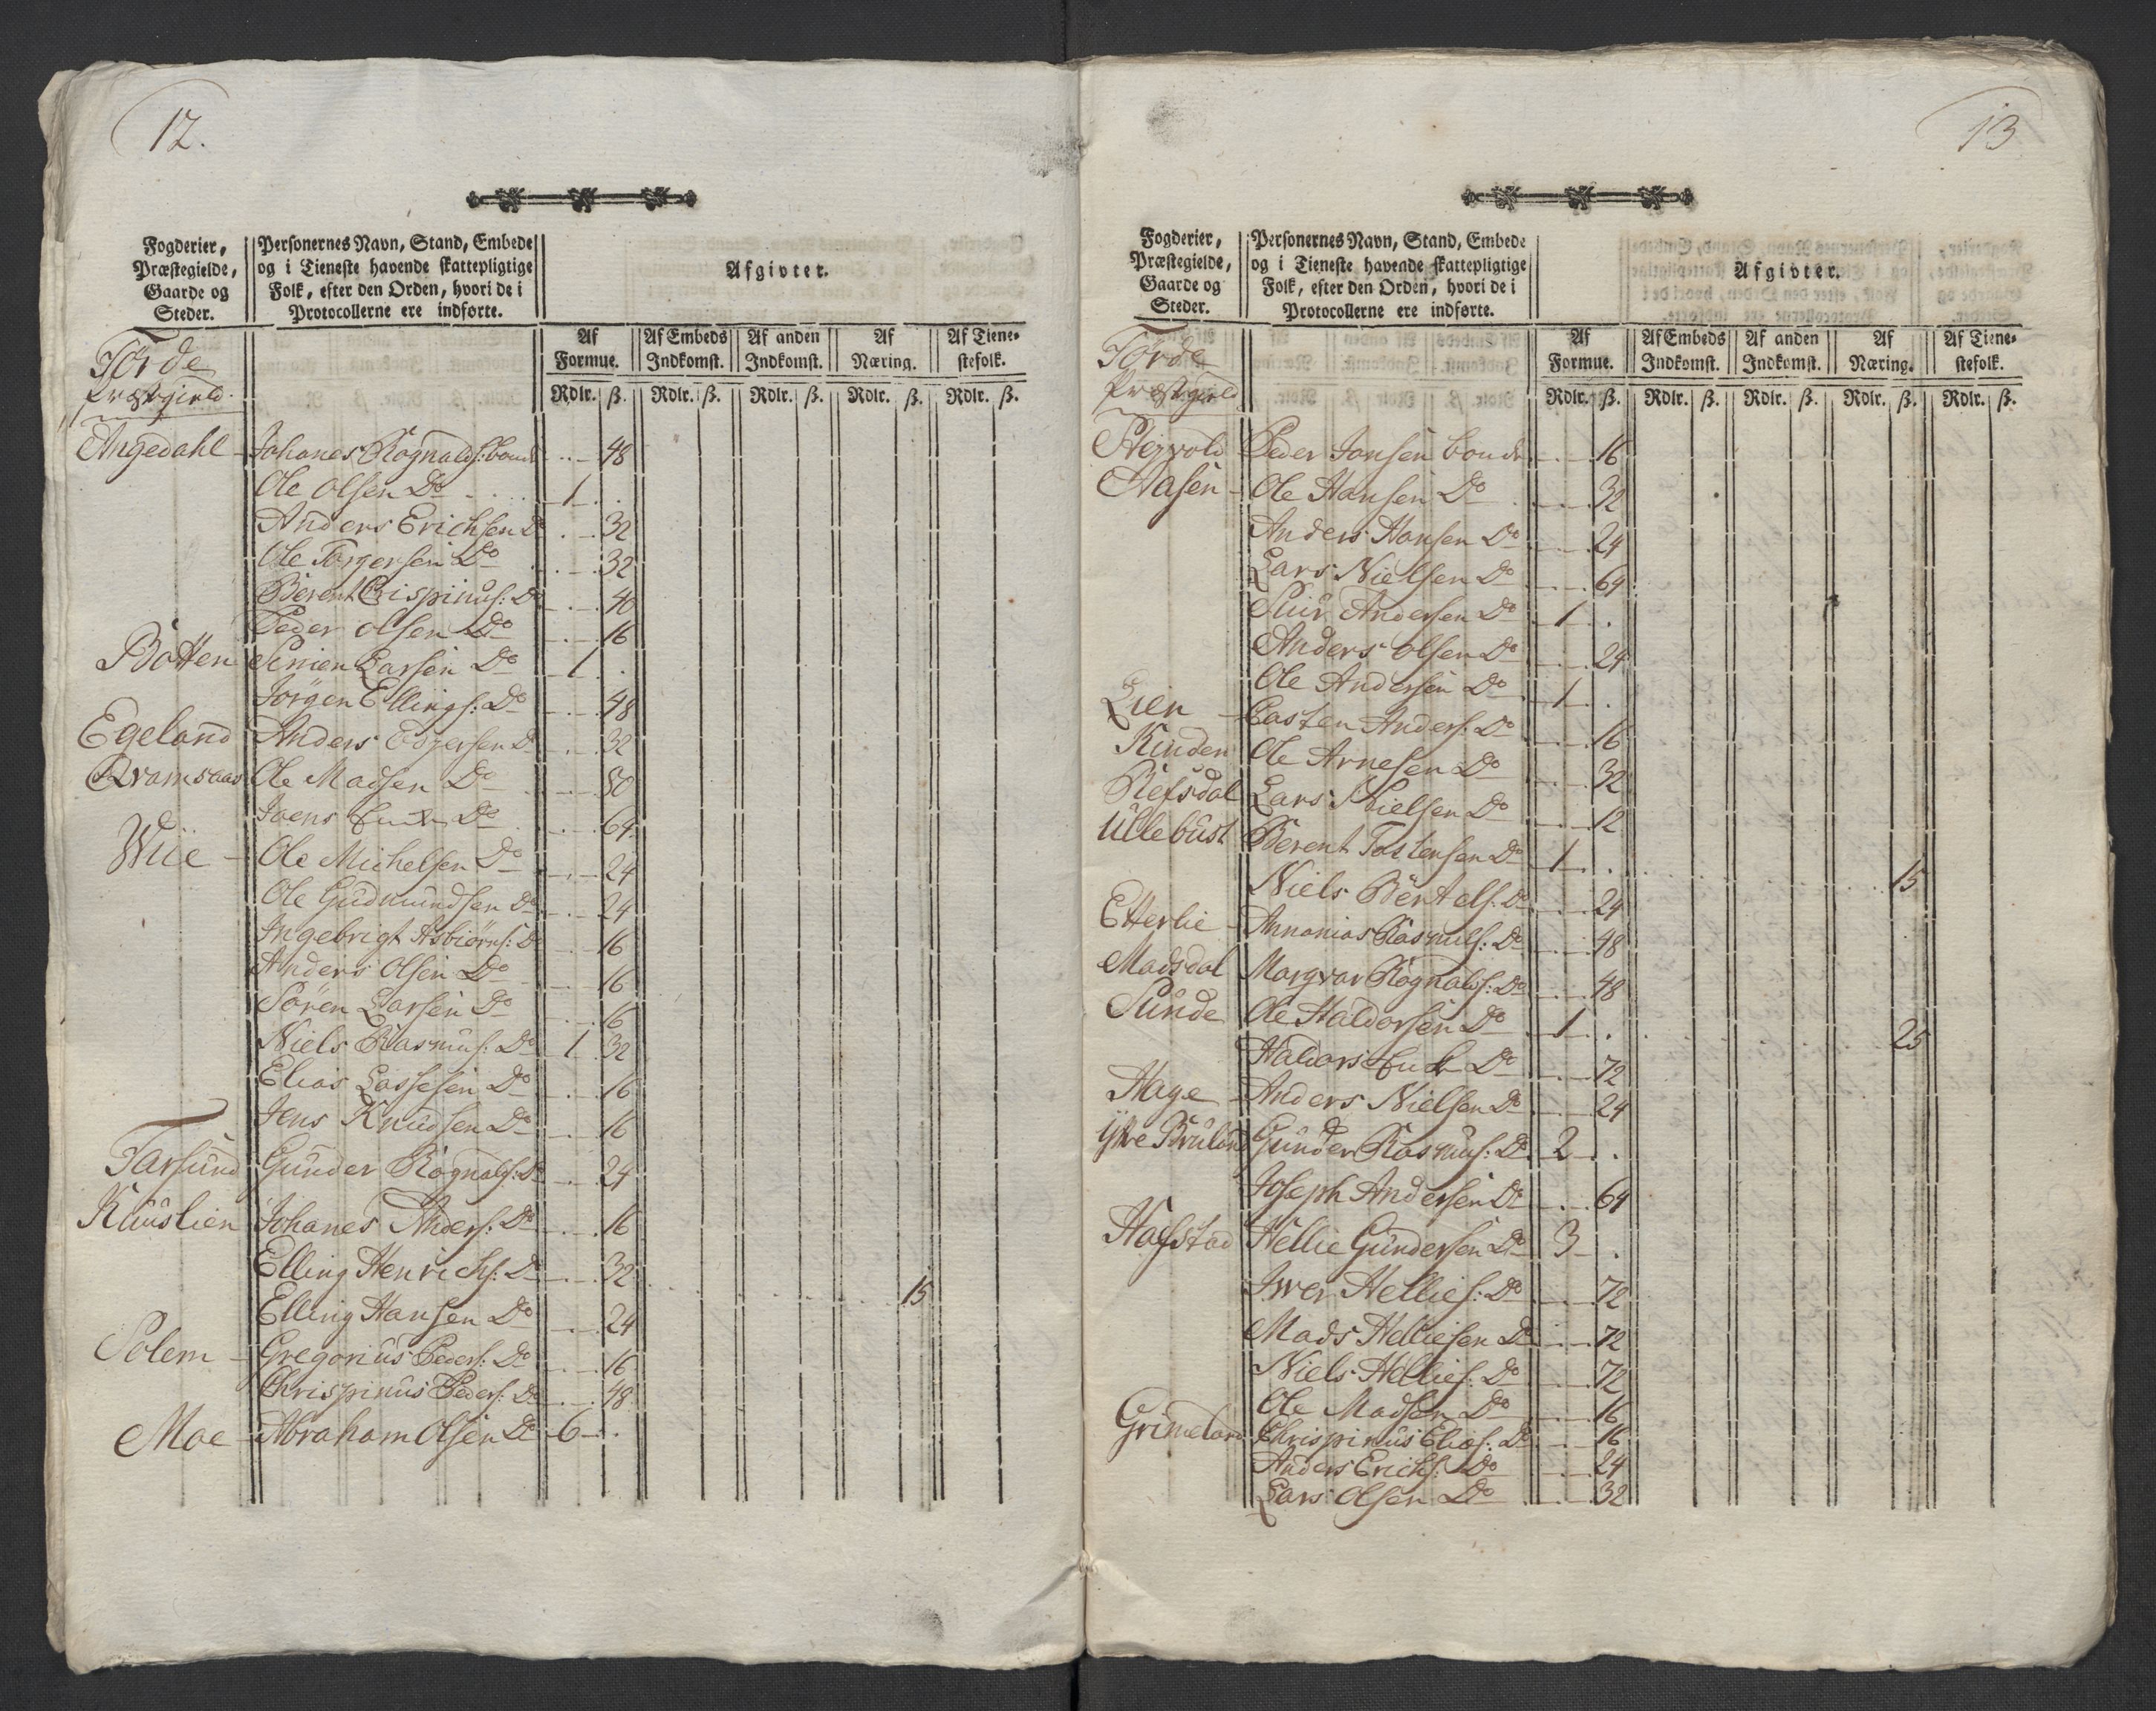 12.
Fogderier, Præstegielde, Gaarde og Steder.
Personernes Navn, Stand, Embede og i Tieneste havende skattepligtige Folk, efter den Orden, hvori de i Protocollerne ere indførte.
Afgivter.
Af Formue. Af Embeds Indkomst. Af anden Indkomst. Af Næring. Af Tienestefolk.
Rdlr. ß. Rdlr. ß. Rdlr. ß. Rdlr. ß. Rdlr. ß.
Førde
Præstgield
Angedahl Johanes Rognalds: bonde 48
Ole Olsen Do 1
Anders Erichsen Do 32
Ole Torgersen Do 32
Berent Crispinus: Do 40
Peder Olsen Do 16
Botten Simen Larsen Do 1
Jørgen Ellings: Do 48
Egeland Anders Do 32
Qvamsaas Ole Madsen Do 80
Joens Enke Do 64
Wiie Ole Michelsen Do 24
Ole Gudmundsen Do 24
Ingebrigt Asbiørns: Do 16
Anders Olsen Do 16
Søren Larsen Do 16
Niels Rasmus: Do 1 32
Elias Lassesen Do 16
Jens Knudsen Do 16
Farsund Gunder Rognalds: Do 24
Kuuslien Johanes Anders: Do 16
Elling Henrichs: Do 32
Elling Hansen Do 24 15
Solem Gregorius Peders: Do 16
Chrispinus Peders: Do 48
Moe Abraham Olsen Do 6
13
Fogderier, Præstegielde, Gaarde og Steder.
Personernes Navn, Stand, Embede og i Tieneste havende skattepligtige Folk, efter den Orden, hvori de i Protocollerne ere indførte.
Afgivter.
Af Formue. Af Embeds Indkomst. Af anden Indkomst. Af Næring. Af Tienestefolk.
Rdlr. ß. Rdlr. ß. Rdlr. ß. Rdlr. ß. Rdlr. ß.
Førde
Præstgield
Stejvold Peder Jonsen bonde 16
Aasen Ole Hansen Do 32
Anders Hansen Do 24
Lars Nielsen Do 64
Siur Andersen Do 1
Anders Olsen Do 24
Ole Andersen Do 1
Lien Casten Anders: Do 16
Kinden Ole Arnesen Do 32
Refsdal Lars Nielsen Do 12
Ullebust Berent Tostensen Do 1
Niels Bentels: Do 24 15
Etterlie Annanias Rasmus: Do 48
Madsdal Margvar Rognalds: Do 48
Sunde Ole Haldorsen Do 1
Haldors Enke Do 72 25
Hage Anders Nielsen Do 24
Ytre Bruland Gunder Rasmus: Do 2
Joseph Andersen Do 64
Hafstad Hellie Gundersen Do 3
Iver Hellies: Do 72
Mads Helliesen Do 72
Niels Hellies: Do 72
Ole Madsen Do 16
Grimeland Chrispinus Elias: Do 16
Anders Erichs: Do 24
Lars Olsen Do 32